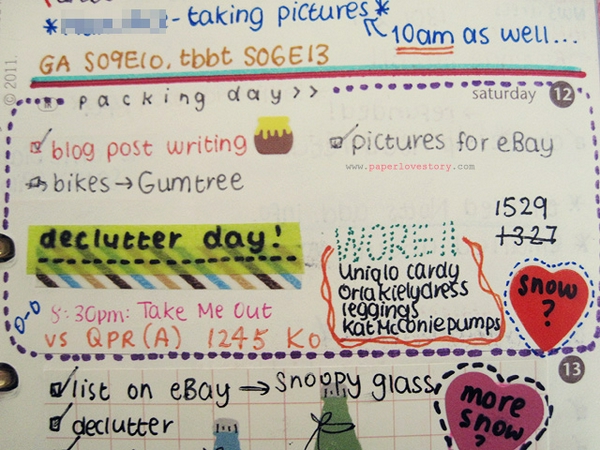 * - taking pictures *
10am as well...
GA S09E10. tbbt S06E13
© 2011.
packing day >>
saturday 12
blog post writing
pictures for eBay
www.paperlovestory.com
bikes → Gumtree
1529
+327
declutter day!
WORE
Uniqlo cardy
Orla kiely dress
leggings
Kat McConie pumps
snow
?
0-0
8:30pm: Take Me Out
vs QPR (A) 1245 KO
13
list on eBay → Snoopy glass
declutter
more
snow
?